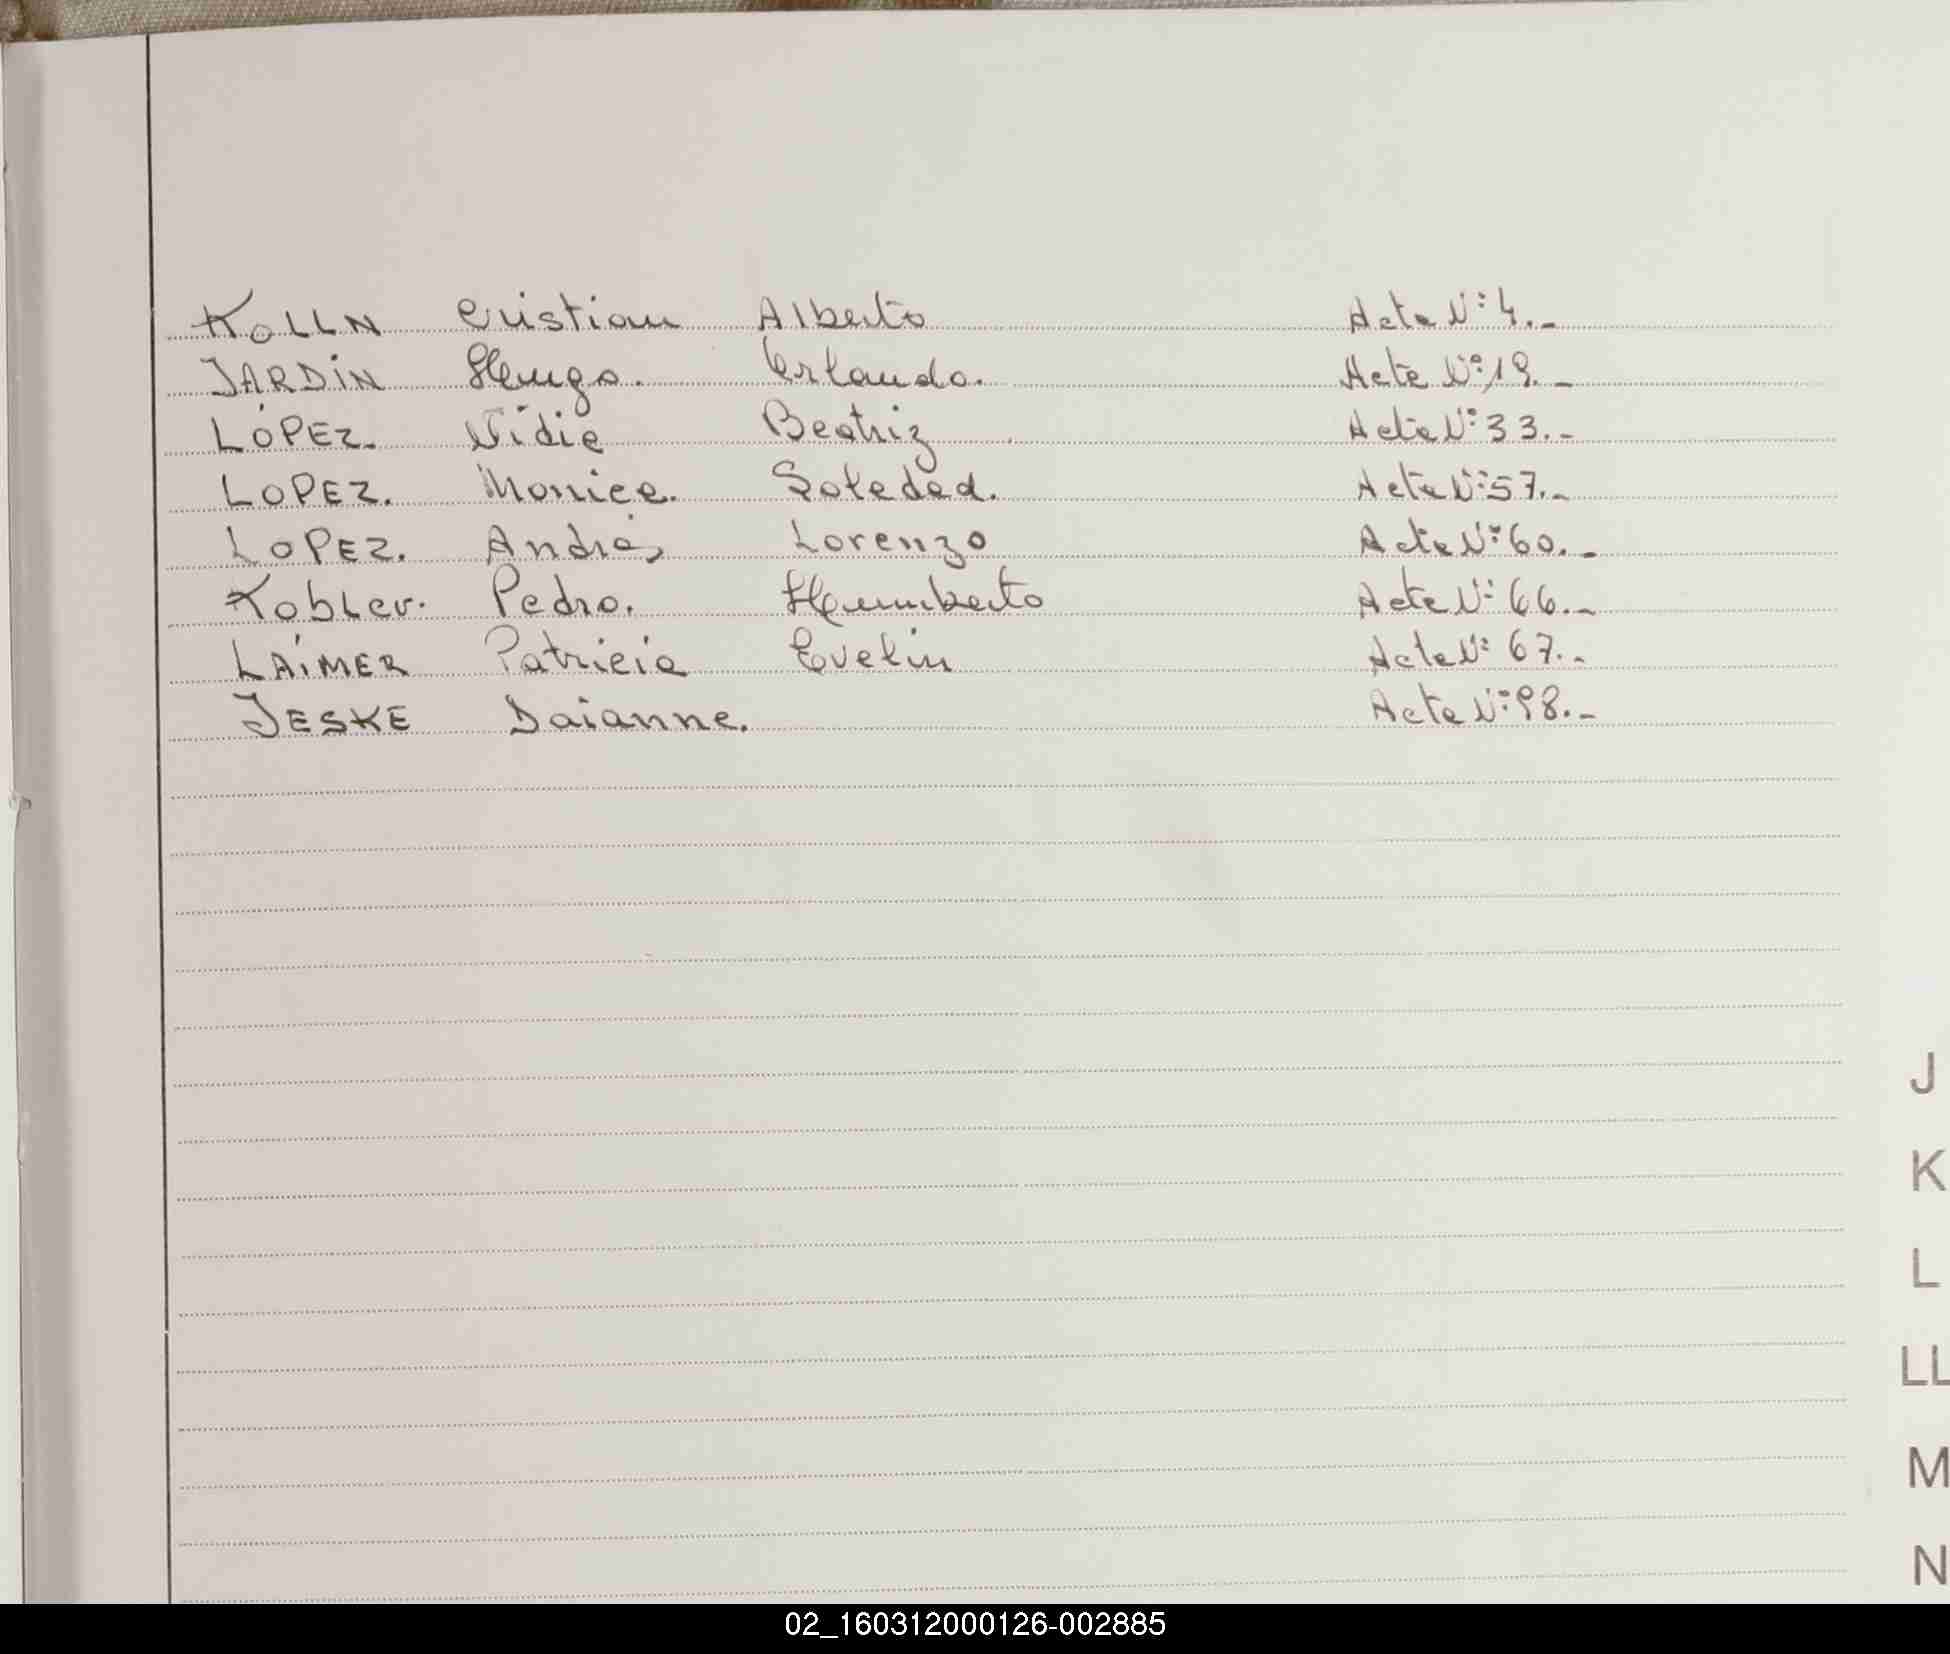 KOLLN Cristian Alberto Acta Nº 4.-
JARDÍN Hugo. Orlando. Acta Nº 19.-
LÓPEZ. Nidia Beatriz Acta Nº 33.-
LOPEZ. Monica. Soledad. Acta Nº 57.-
LOPEZ. Andrés Lorenzo Acta Nº 60.-
Kobler. Pedro. Humberto Acta Nº 66.-
LAIMER Patricia Evelin Acta Nº 67.-
JESKE Daianne. Acta Nº 98.-
J
K
L
LL
M
N
02_160312000126-002885